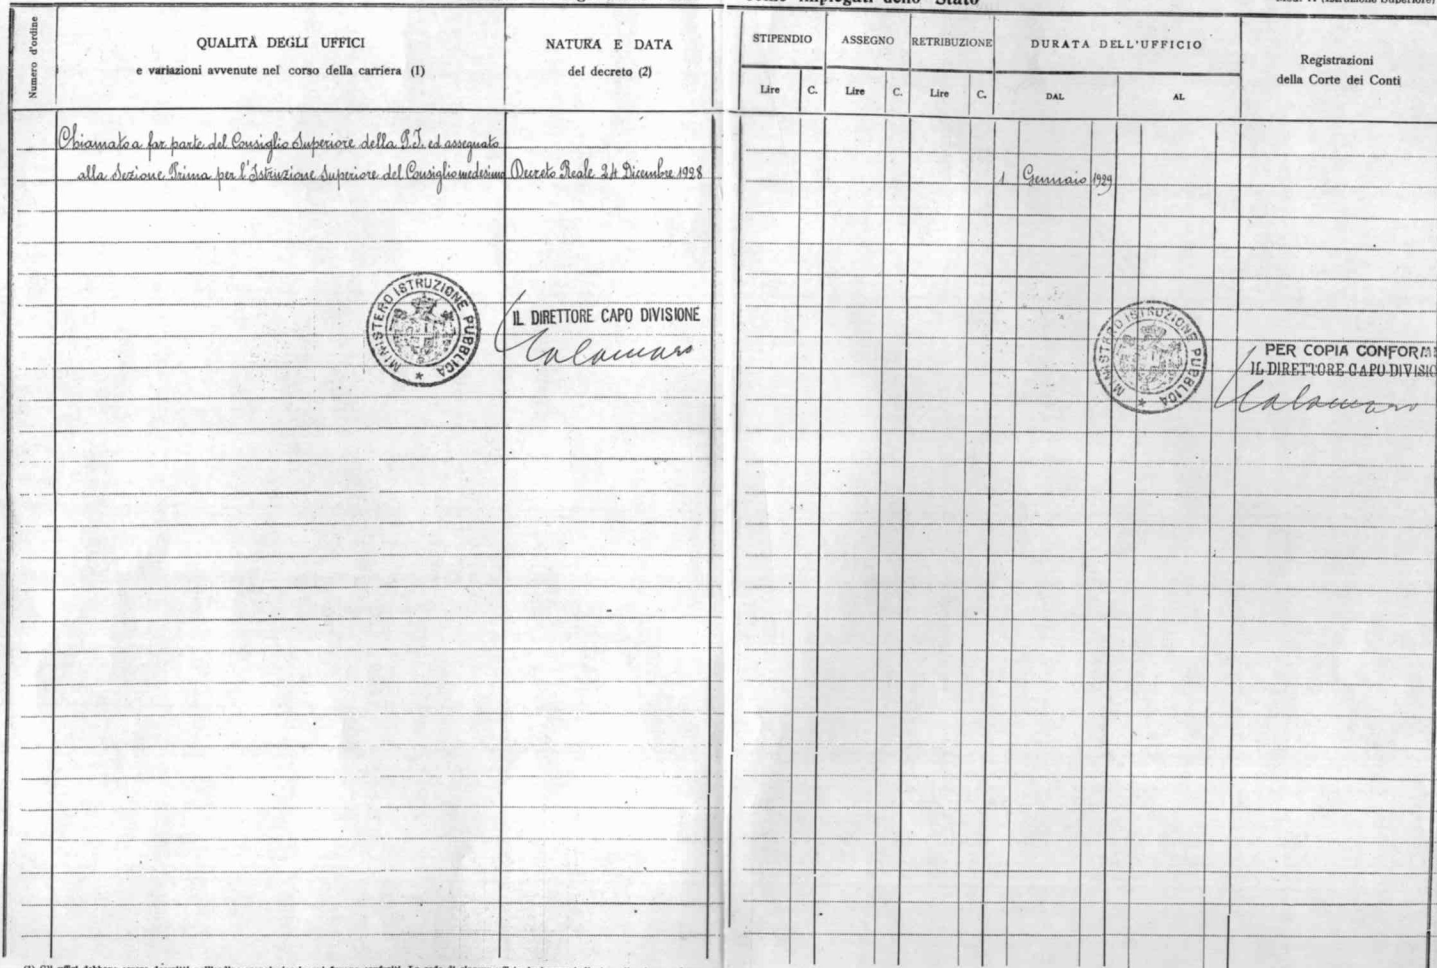 come impiegati dello Stato
Numero d'ordine
QUALITÀ DEGLI UFFICI
e variazioni avvenute nel corso della carriera (1)
NATURA E DATA
del decreto (2)
STIPENDIO
Lire C.
ASSEGNO
Lire C.
RETRIBUZIONE
Lire C.
DURATA DELL'UFFICIO
DAL AL
Registrazioni
della Corte dei Conti
Chiamato a far parte del Consiglio Superiore della P.I. ed assegnato
alla Sezione Prima per l'Istruzione Superiore del Consiglio medesimo Decreto Reale 24 Dicembre 1928 1 Gennaio 1929
MINISTERO ISTRUZIONE PUBBLICA
IL DIRETTORE CAPO DIVISIONE
MINISTERO ISTRUZIONE PUBBLICA
PER COPIA CONFORM
IL DIRETTORE CAPO DIVISIO